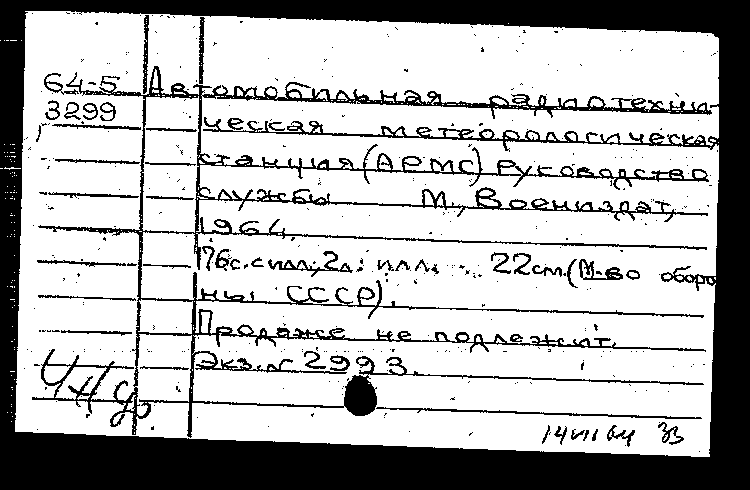 64-5 Автомобильная радиотехни-
3299 ческая метеорологическая
станция (АРМС) Руководство
службы М., Воениздат,
1964.
176с. с илл.; 2л. илл. 22см. (М-во оборо
ны СССР).
Продаже не подлежит.
Экз. № 2993.
14 VII 64